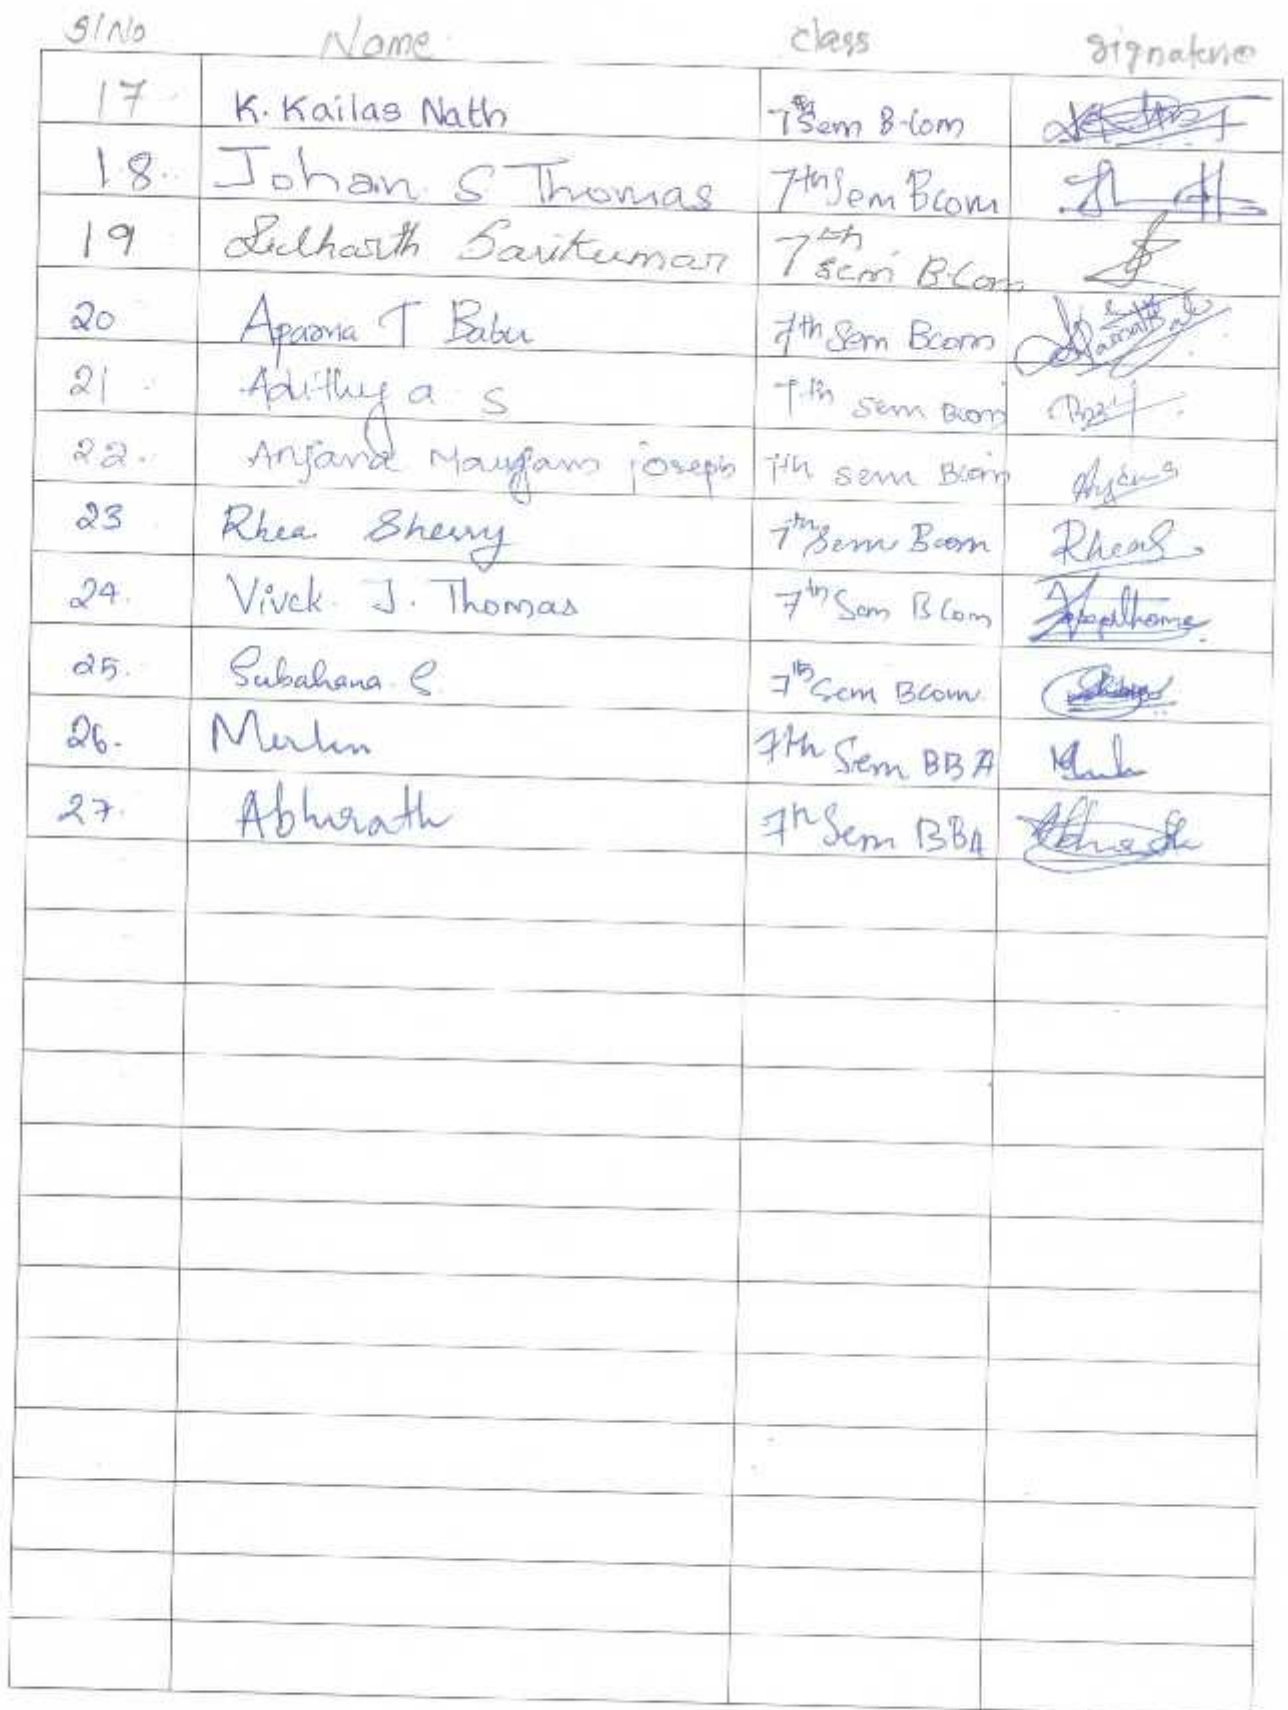 Sl No Name Class Signature
17 K. Kailas Nath 7th Sem B-Com
18. Johan S Thomas 7th Sem Bcom
19 Sidharth Sarikumar 7th Sem B.Com
20 Aparna T Babu 7th Sem Bcom
21 Adithya S 7th Sem Bcom
22. Anjana Mariyam joseph 7th Sem Bcom
23 Rhea Sherry 7th Sem Bcom RheaS
24. Vivek J. Thomas 7th Sem BCom
25. Subahana S 7th Sem BCom
26. Merlin 7th Sem BBA
27. Abhirath 7th Sem BBA